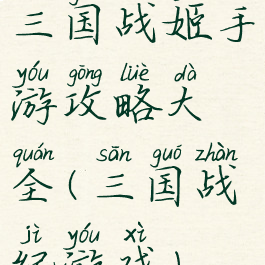 三国战姬手
yóu gōng lüè dà
游攻略大
quán sān guó zhàn
全(三国战
jì yóu xì
纪游戏)